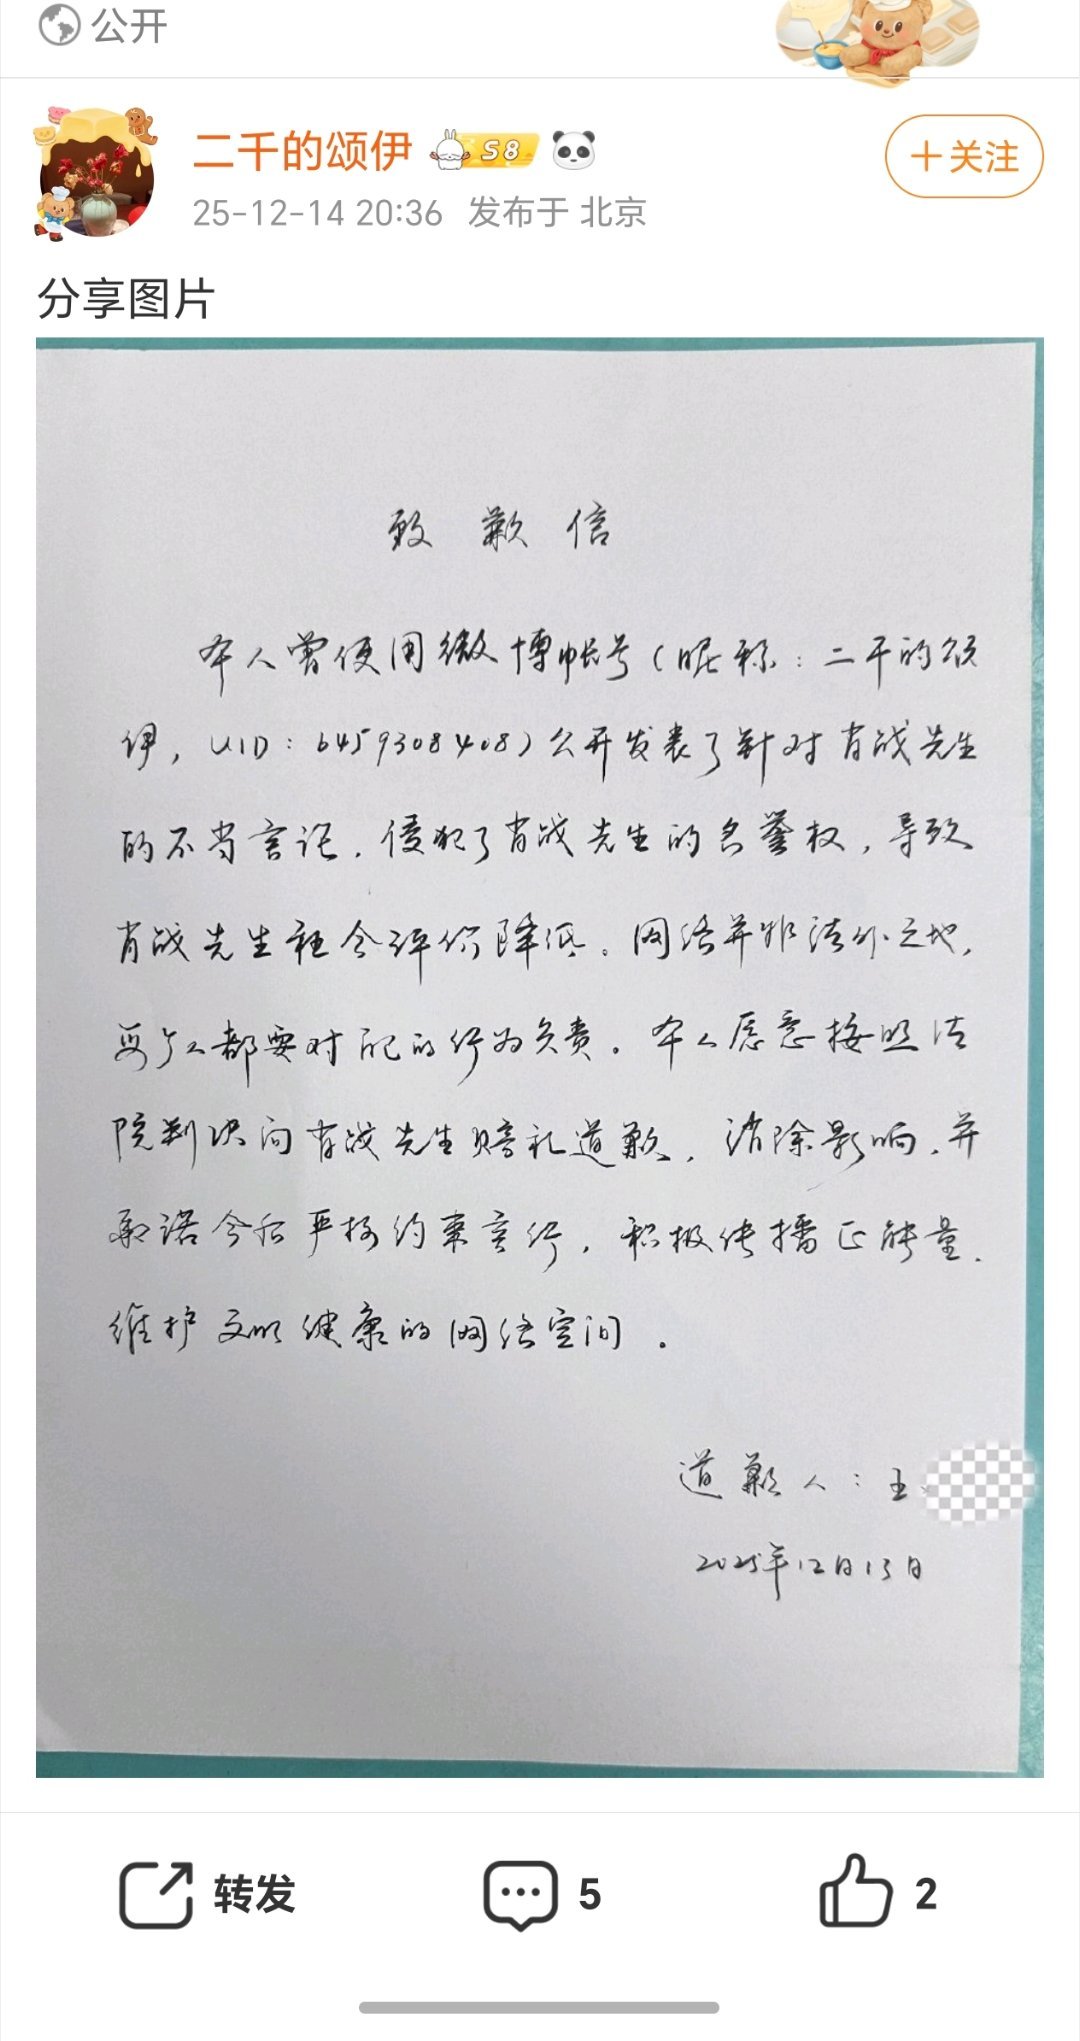 公开
二千的颂伊 S8
+关注
25-12-14 20:36 发布于 北京
分享图片
致歉信
本人曾使用微博帐号(昵称:二千的颂
伊,UID:6459308408)公开发表了针对肖战先生
的不当言论,侵犯了肖战先生的名誉权,导致
肖战先生社会评价降低。网络并非法外之地,
每个人都要对自己的行为负责。本人愿意按照法
院判决向肖战先生赔礼道歉,消除影响,并
承诺今后严格约束言行,积极传播正能量,
维护文明健康的网络空间。
道歉人:王
2025年12月13日
转发 5 2